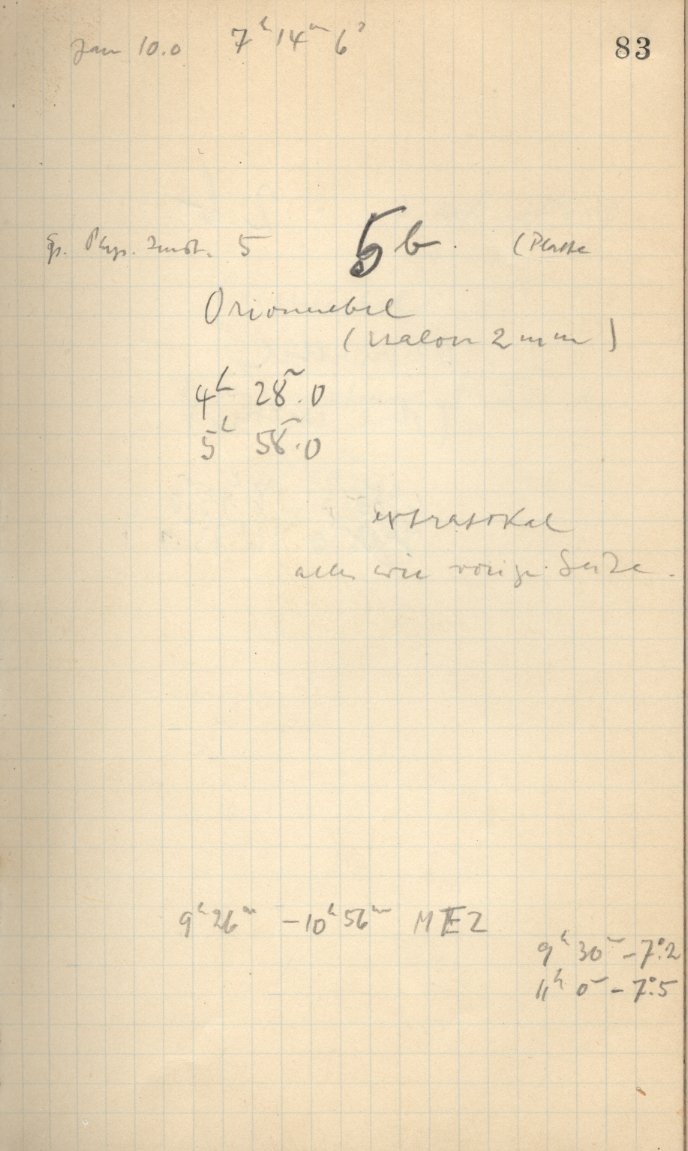 Jan 10.0 7ʰ 14ᵐ 6ˢ 83
Phys. Inst. 5 5b. (Platte
Orionnebel
(Etalon 2 mm)
4ʰ 28ᵐ.0
5ʰ 58ᵐ.0
extrafokal
alles wie vorige Seite.
9ʰ 26ᵐ – 10ʰ 56ᵐ MEZ
9ʰ 30ᵐ – 7°.2
11ʰ 0ᵐ – 7°.5